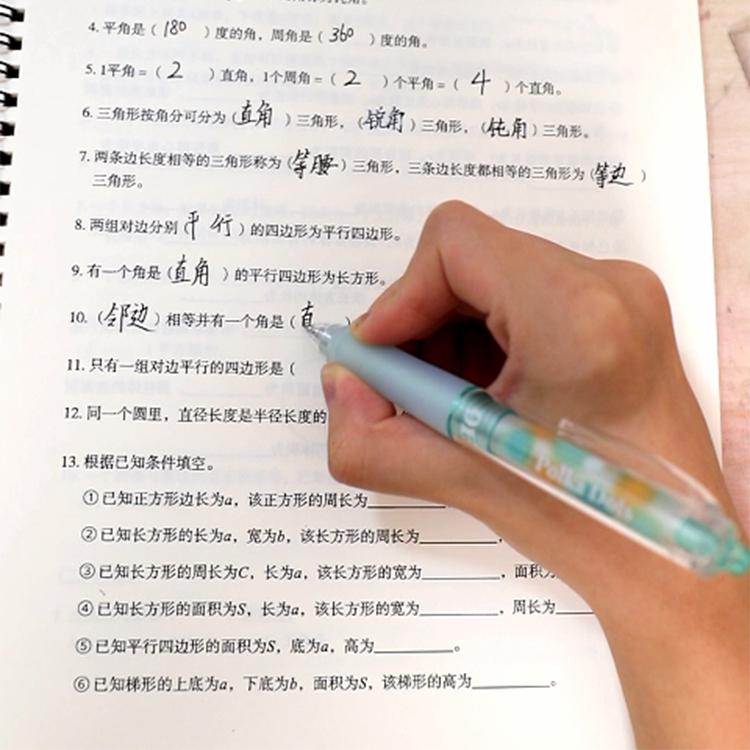 4. 平角是（180）度的角，周角是（360）度的角。
5. 1平角=（2）直角，1个周角=（2）个平角=（4）个直角。
6. 三角形按角分可分为（直角）三角形，（锐角）三角形，（钝角）三角形。
7. 两条边长度相等的三角形称为（等腰）三角形，三条边长度都相等的三角形为（等边）
三角形。
8. 两组对边分别（平行）的四边形为平行四边形。
9. 有一个角是（直角）的平行四边形为长方形。
10.（邻边）相等并有一个角是（直
11. 只有一组对边平行的四边形是（
12. 同一个圆里，直径长度是半径长度的
13. 根据已知条件填空。
① 已知正方形边长为a，该正方形的周长为
② 已知长方形的长为a，宽为b，该长方形的周长为________，
③ 已知长方形的周长为C，长为a，该长方形的宽为________，面积为
④ 已知长方形的面积为S，长为a，该长方形的宽为________，周长为
⑤ 已知平行四边形的面积为S，底为a，高为________。
⑥ 已知梯形的上底为a，下底为b，面积为S，该梯形的高为________。
Polka Dots